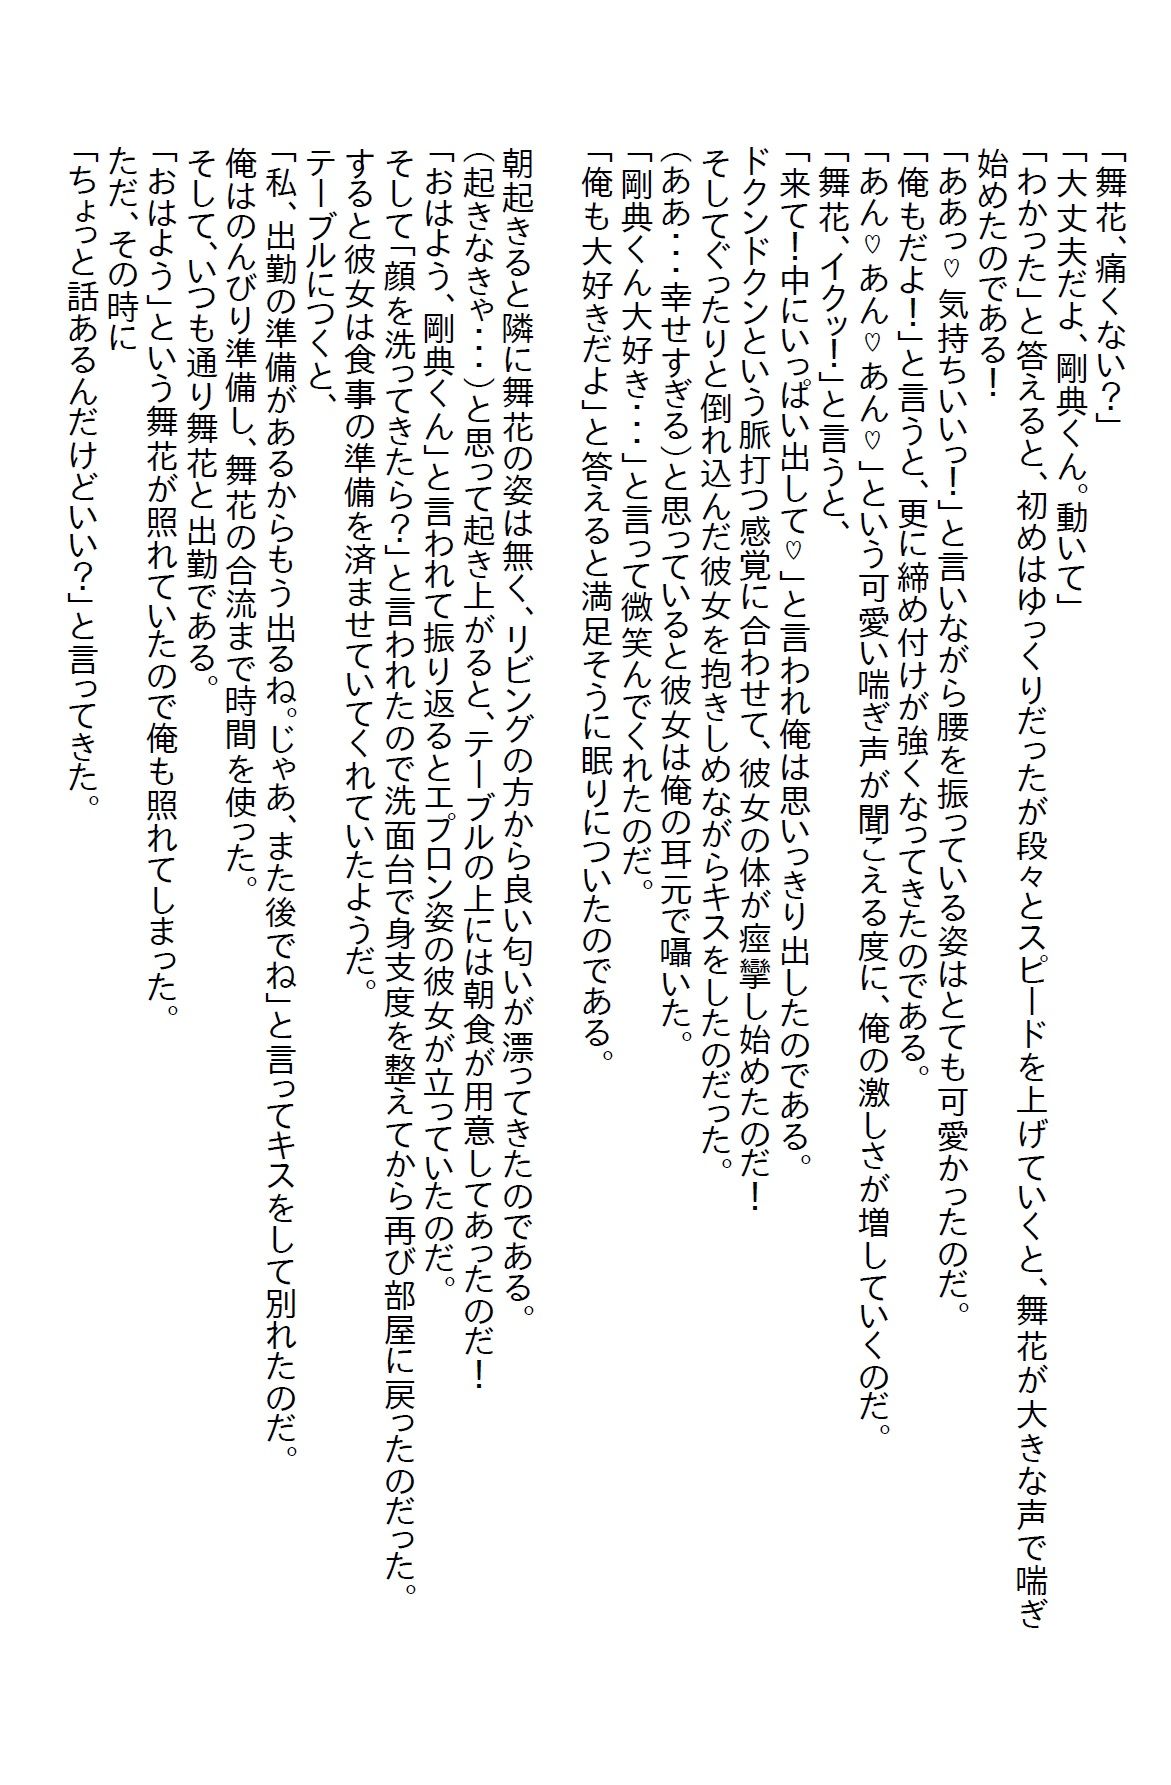 「舞花、痛くない？」
「大丈夫だよ、剛典くん。動いて」
「わかった」と答えると、初めはゆっくりだったが段々とスピードを上げていくと、舞花が大きな声で喘ぎ
始めたのである！
「ああっ♡気持ちいいっ！」と言いながら腰を振っている姿はとても可愛かったのだ。
「俺もだよ！」と言うと、更に締め付けが強くなってきたのである。
「あん♡あん♡あん♡」という可愛い喘ぎ声が聞こえる度に、俺の激しさが増していくのだ。
「舞花、イクッ！」と言うと、
「来て！中にいっぱい出して♡」と言われ俺は思いっきり出したのである。
ドクンドクンという脈打つ感覚に合わせて、彼女の体が痙攣し始めたのだ！
そしてぐったりと倒れ込んだ彼女を抱きしめながらキスをしたのだった。
（ああ・・・幸せすぎる）と思っていると彼女は俺の耳元で囁いた。
「剛典くん大好き・・・」と言って微笑んでくれたのだ。
「俺も大好きだよ」と答えると満足そうに眠りについたのである。
朝起きると隣に舞花の姿は無く、リビングの方から良い匂いが漂ってきたのである。
（起きなきゃ・・・）と思って起き上がると、テーブルの上には朝食が用意してあったのだ！
「おはよう、剛典くん」と言われて振り返るとエプロン姿の彼女が立っていたのだ。
そして「顔を洗ってきたら？」と言われたので洗面台で身支度を整えてから再び部屋に戻ったのだった。
すると彼女は食事の準備を済ませていてくれていたようだ。
テーブルにつくと、
「私、出勤の準備があるからもう出るね。じゃあ、また後でね」と言ってキスをして別れたのだ。
俺はのんびり準備し、舞花の合流まで時間を使った。
そして、いつも通り舞花と出勤である。
「おはよう」という舞花が照れていたので俺も照れてしまった。
ただ、その時に
「ちょっと話あるんだけどいい？」と言ってきた。